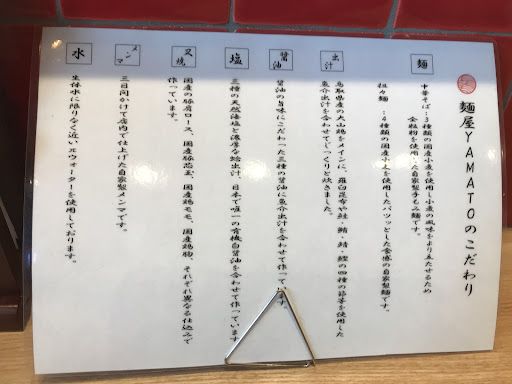 麺屋YAMATOのこだわり
麺
中華そば:3種類の国産小麦を使用し小麦の風味をより立たせるため
全粒粉を使用した自家製手もみ麺です。
担々麺 :4種類の国産小麦を使用したパツッとした食感の自家製麺です。
出汁
鳥取県産の大山鶏をメインに、羅臼昆布や鮭・鯖・鰹の四種の節等を使用した
魚介出汁を合わせてじっくりと炊きました。
醤油
醤油の旨味にこだわった三種の醤油に魚介出汁を合わせて作っています。
塩
三種の天然海塩と濃厚な蛤出汁、日本で唯一の有機白醤油を合わせて作っています
叉焼
国産の豚肩ロース、国産豚恋玉、国産鶏モモ、国産鶏胸、それぞれ異なる仕込みで
作っています。
メンマ
三日間かけて店内で仕上げた自家製メンマです。
水
生体水に限りなく近いπウォーターを使用しております。